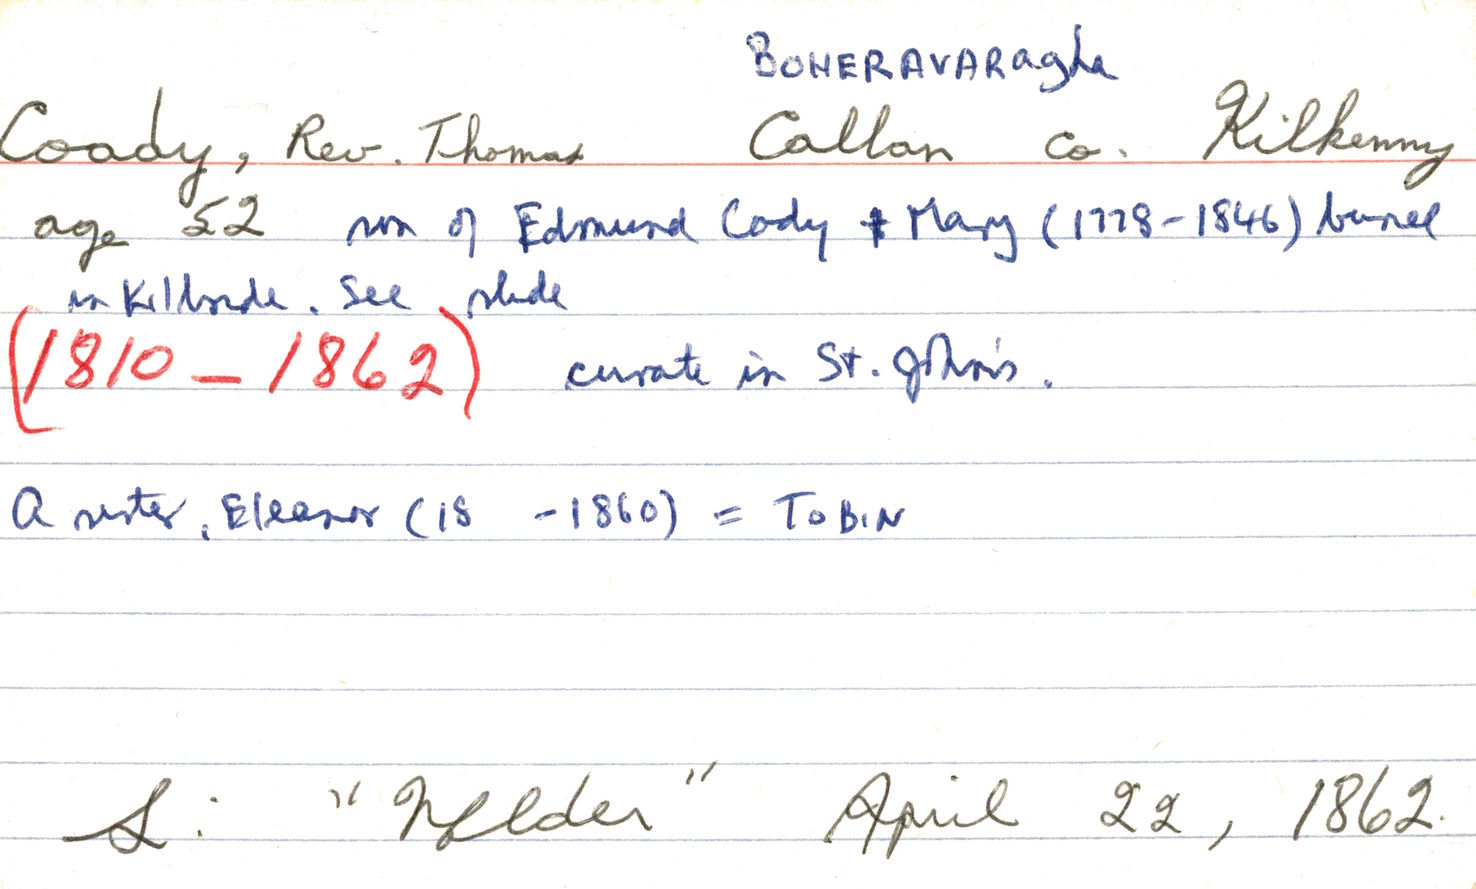 BOHERAVARagha
Coady, Rev. Thomas Callan co. Kilkenny
age 52 son of Edmund Cody & Mary (1778-1846) buried
in Killbride. See slide
(1810 - 1862) curate in St. John's.
A sister, Eleanor (18 -1860) = TOBIN
S: "Nfelder" April 22, 1862.